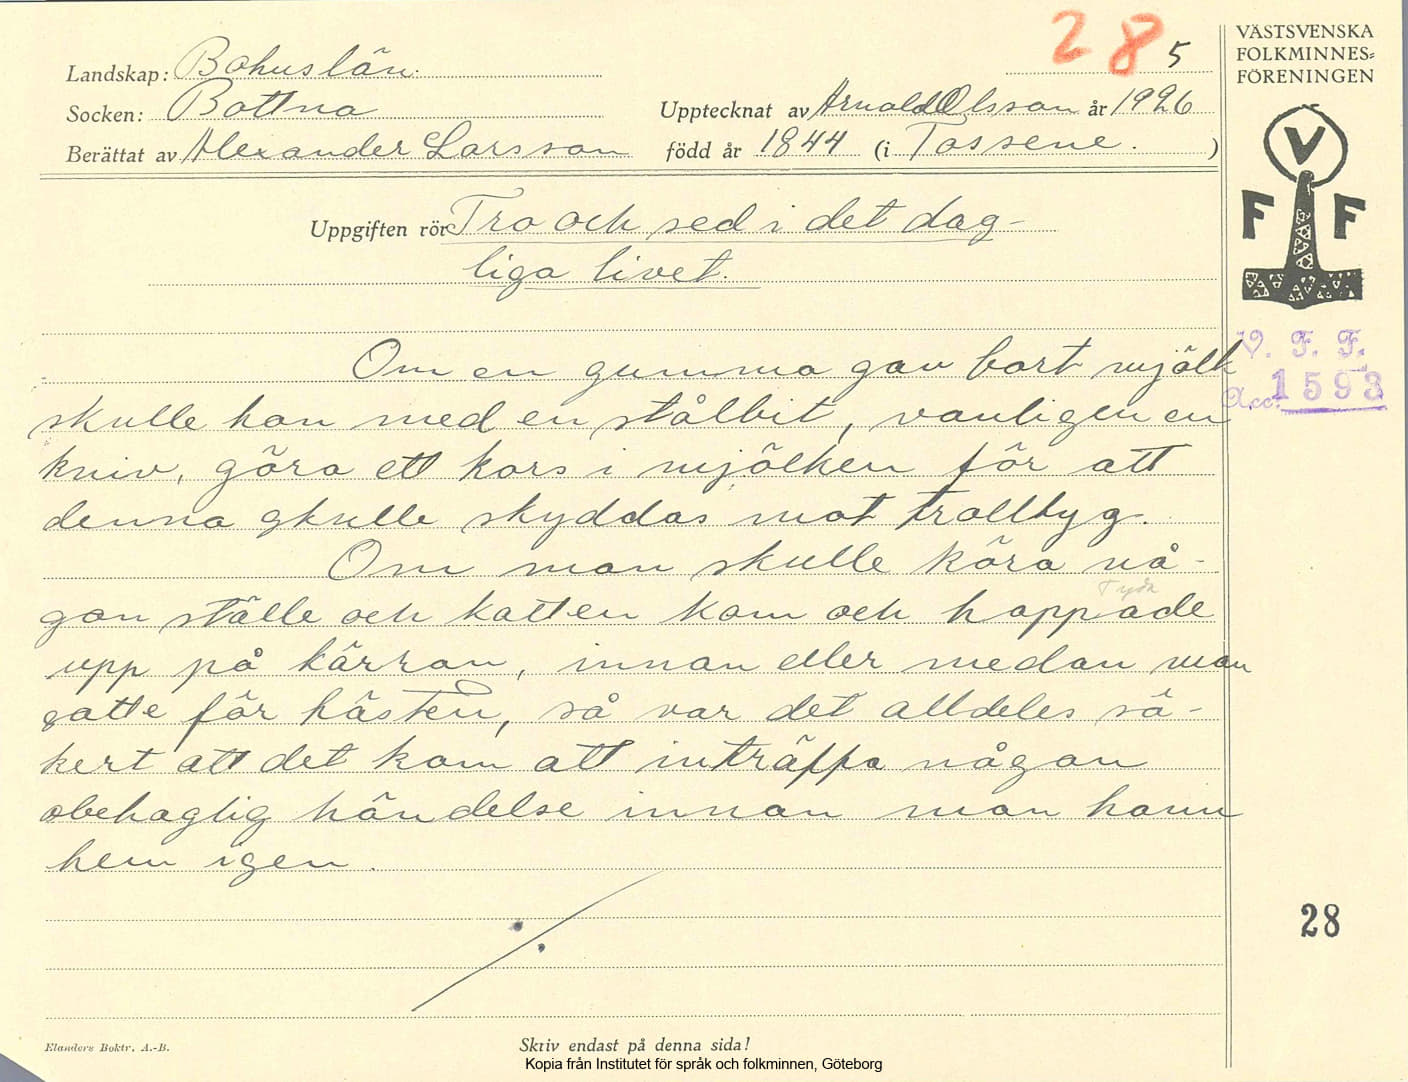 28 5
VÄSTSVENSKA
FOLKMINNES=
FÖRENINGEN
Landskap: Bohuslän.
Socken: Bottna
Upptecknat av Arnold Olsson år 1926
Berättat av Alexander Larsson född år 1844 (i Tossene. )
V
F F
Uppgiften rör Tro och sed i det dag-
liga livet.
V. F. F.
Acc. 1593
Om en gumma gav bort mjölk
skulle hon med en stålbit, vanligen en
kniv, göra ett kors i mjölken för att
denna skulle skyddas mot trolltyg.
Om man skulle köra nå-
gon ställe och katten kom och hoppade
upp på kärran, innan eller medan man
satte för hästen, så var det alldeles sä-
kert att det kom att inträffa någon
obehaglig händelse innan man hann
hem igen.
28
Elanders Boktr. A.-B.
Skriv endast på denna sida!
Kopia från Institutet för språk och folkminnen, Göteborg